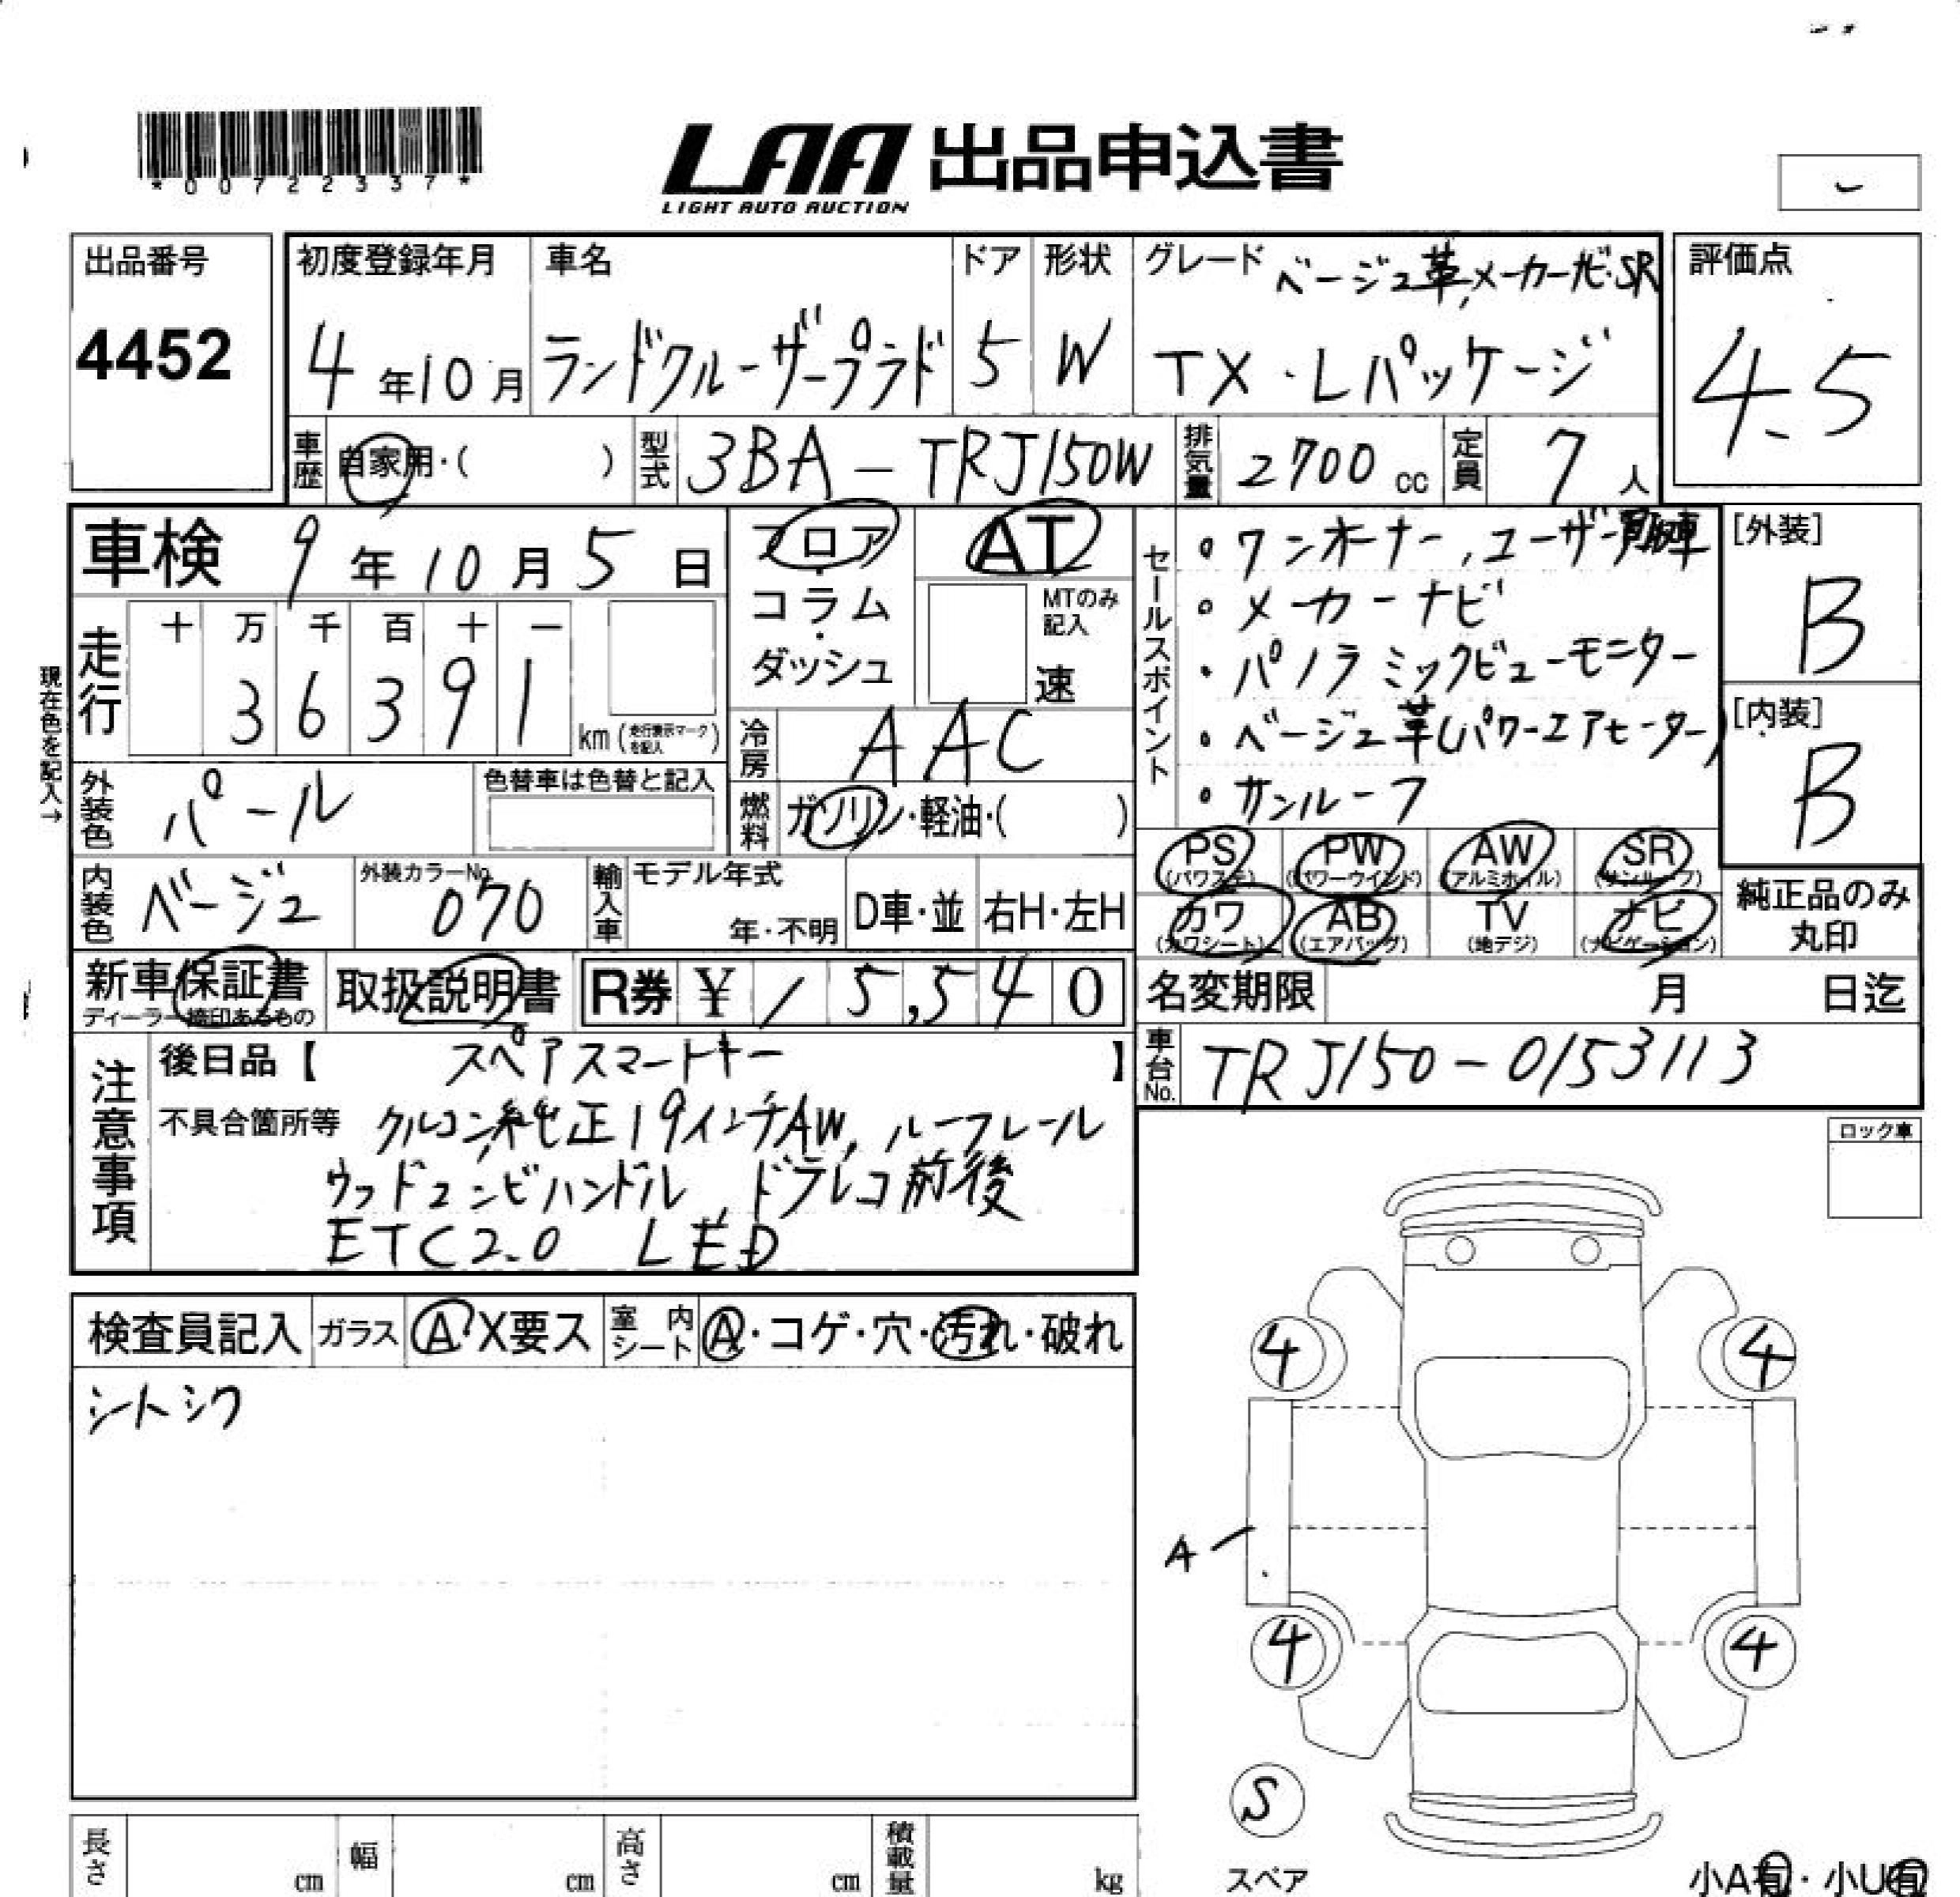 *00722337*
LAA 出品申込書
LIGHT AUTO AUCTION
出品番号
4452
初度登録年月
4年10月
車名
ランドクルーザープラド
ドア
5
形状
W
グレード ベージュ革,メーカーナビ・SR
TX・Lパッケージ
評価点
4.5
車歴 自家用・( )
型式 3BA-TRJ150W
排気量 2700cc
定員 7人
車検 9年10月5日
現在色を記入→
走行
十 万 千 百 十 一
3 6 3 9 1 km (走行表示マークを記入)
フロア
・
コラム
・
ダッシュ
AT
MTのみ記入
速
冷房 AAC
燃料 ガソリン・軽油・( )
外装色 パール
色替車は色替と記入
内装色 ベージュ
外装カラーNo. 070
輸入車 モデル年式 年・不明 D車・並 右H・左H
新車保証書
ディーラー捺印あるもの
取扱説明書
R券 ¥ 15,540
セールスポイント
・ワンオーナー,ユーザー買取車
・メーカーナビ
・パノラミックビューモニター
・ベージュ革(パワーエアヒーター)
・サンルーフ
PS (パワステ) PW (パワーウインド) AW (アルミホイル) SR (サンルーフ)
カワ (カワシート) AB (エアバッグ) TV (地デジ) ナビ (ナビゲーション)
[外装]
B
[内装]
B
純正品のみ
丸印
名変期限 月 日迄
車台No. TRJ150-0153113
注意事項
後日品【 スペアスマートキー 】
不具合箇所等 クルコン,純正19インチAW,ルーフレール
ウッドコンビハンドル,ドラレコ前後
ETC2.0 LED
ロック車
検査員記入 ガラス A X要ス 室内シート A・コゲ・穴・汚れ・破れ
シートシワ
4 4
A
4 4
S
スペア
小A有・小U有
長さ cm 幅 cm 高さ cm 積載量 kg